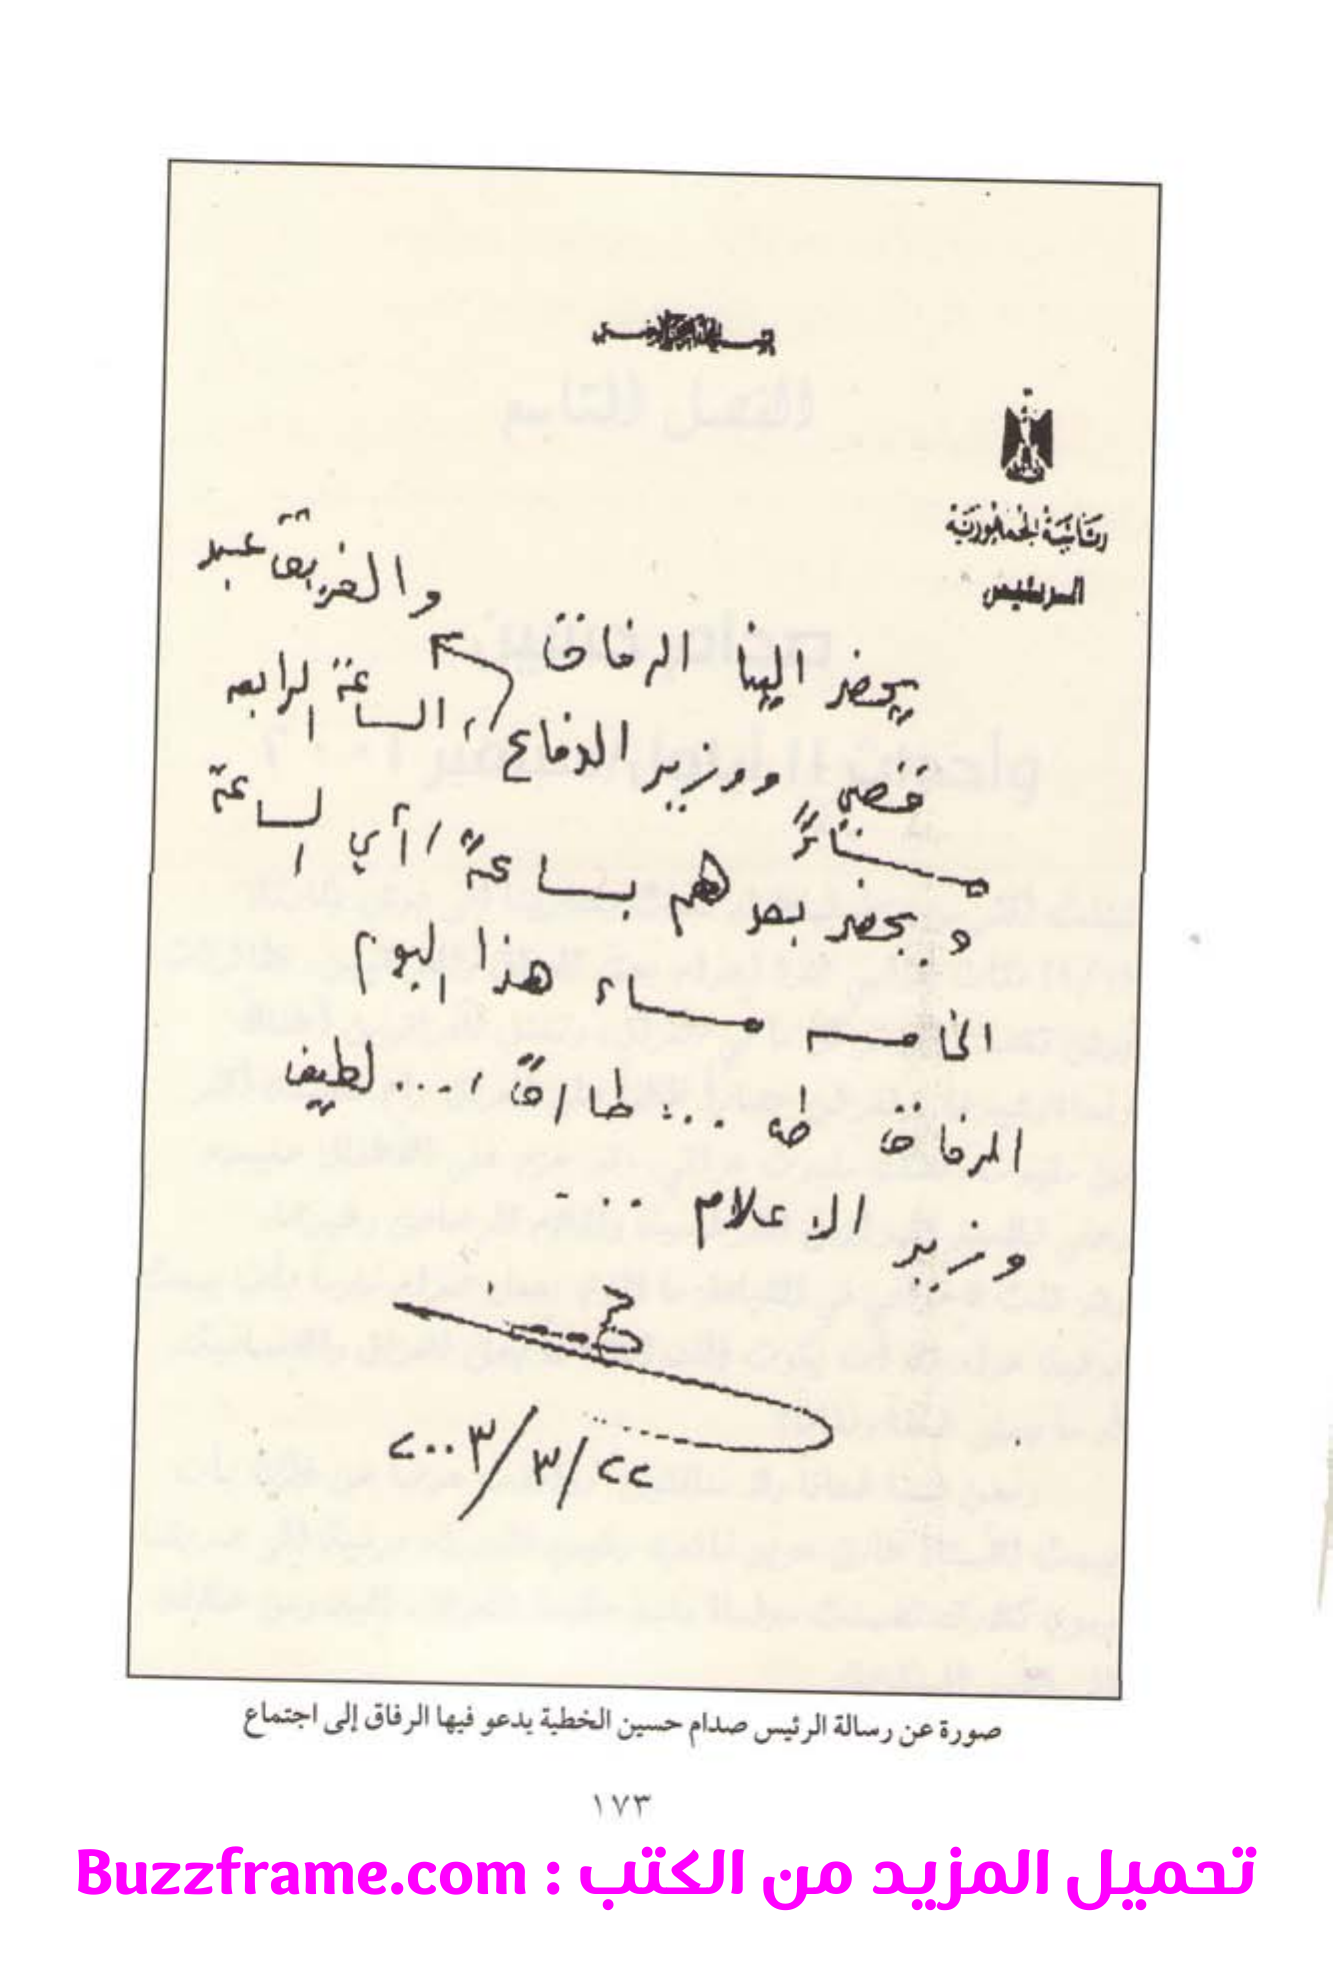 بسم الله الرحمن الرحيم
رئاسة الجمهورية
الرئيس
يحضر الينا الرفاق
والفريق عبد
قصي ووزير الدفاع، الساعة الرابعه
مساءً
ويحضر بعدهم بساعة، أي الساعة
الخامسه مساء هذا اليوم
الرفاق طه ... طارق، ... لطيف
وزير الاعلام ...
٢٢/٣/٢٠٠٣
صورة عن رسالة الرئيس صدام حسين الخطية يدعو فيها الرفاق إلى اجتماع
١٧٣
تحميل المزيد من الكتب : Buzzframe.com